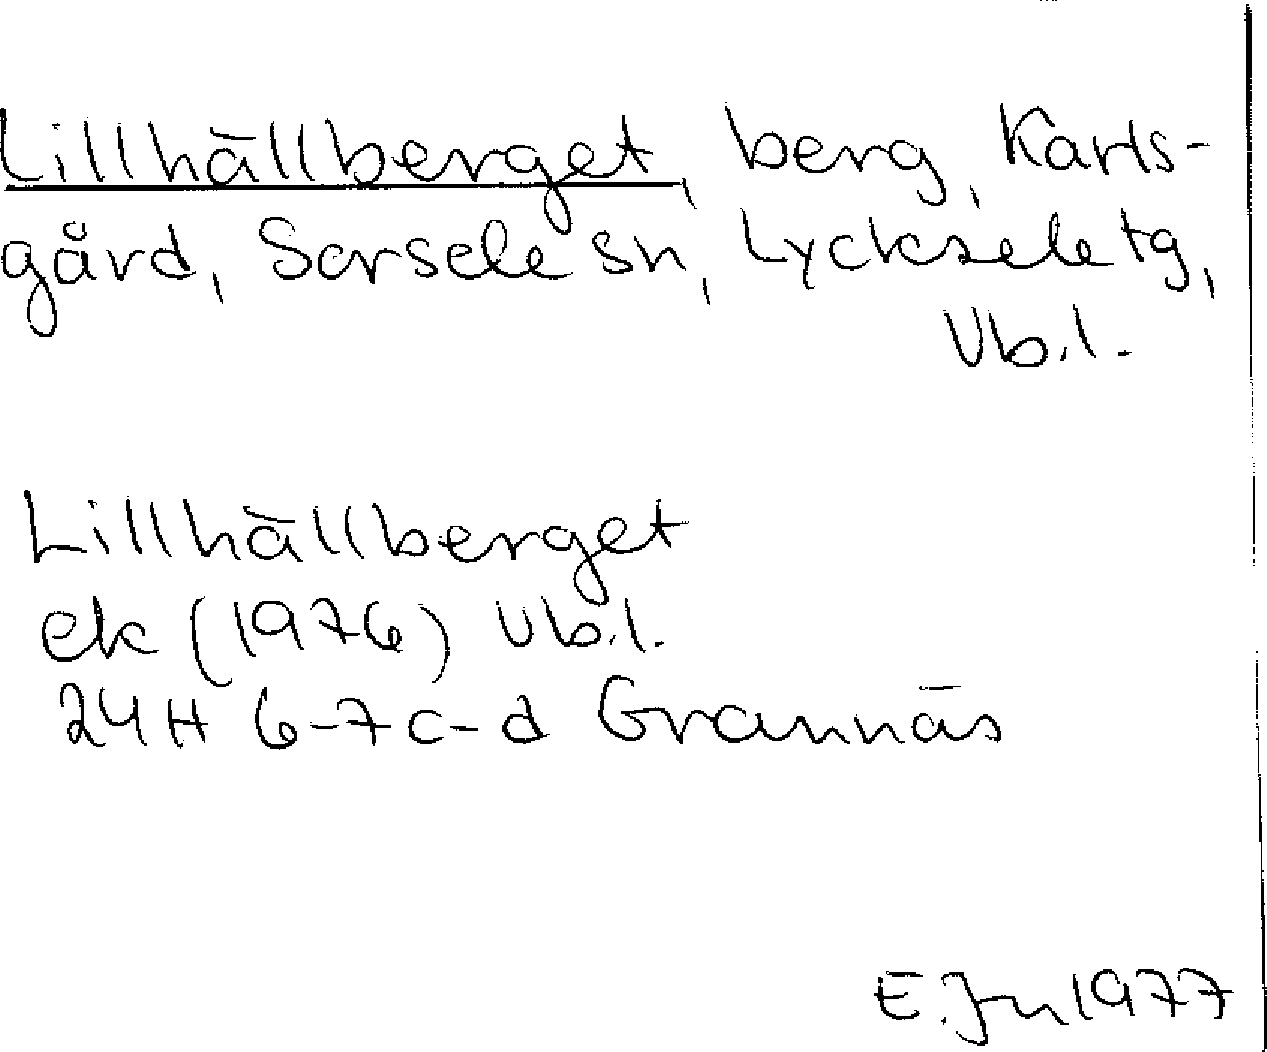 Lillhällberget, berg, Karls-
gård, Sorsele sn, Lycksele tg,
Vb.l.
Lillhällberget
ek (1976) Vb.l.
24H 6-7c-d Grannäs
E.Jn 1977